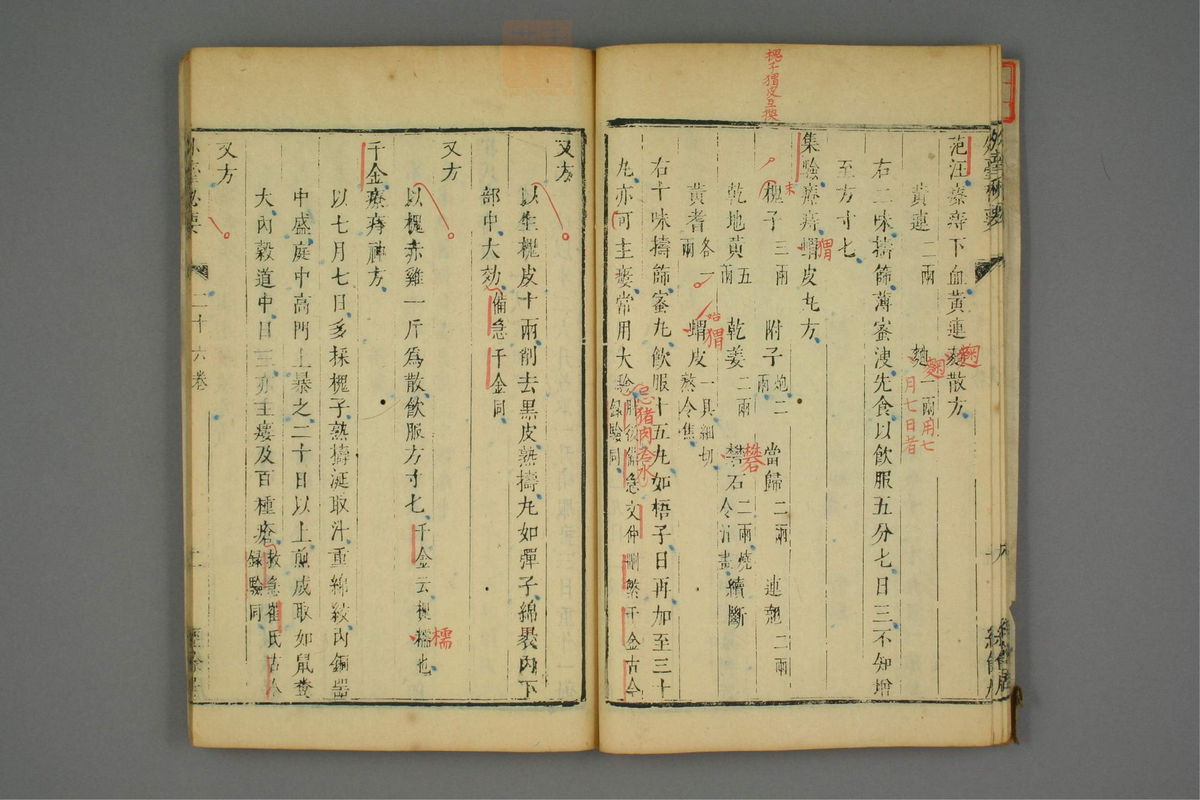 槐子猬皮互換
范汪療痔下血黃連麴散方
麴
黃連二兩 麴一兩
麴
用七月七日者
右二味擣篩薄蜜溲先食以飲服五分匕日三不知增
至方寸匕
集驗療痔蝟皮丸方
猬
槐子三兩 附子炮二兩 當歸二兩 連翹二兩
末
乾地黃五兩 乾姜二兩 礬石二兩燒令汁盡 續斷
礬
黃耆各一兩 蝟皮一具細切熬令焦
猬
右十味擣篩蜜丸飲服十五丸如梧子日再加至三十
丸亦可主瘻常用大驗肘後備急文仲刪繁千金古今錄驗同
忌猪肉冷水
外臺秘要
經餘居
又方
以生槐皮十兩削去黑皮熟擣丸如彈子綿裹內下
部中大效備急千金同
又方
以槐赤雞一斤為散飲服方寸匕千金云槐檽也
檽
千金療痔神方
以七月七日多採槐子熟擣涎取汁重綿絞內銅器
中盛庭中高門上暴之二十日以上煎成取如鼠糞
大內穀道中日三亦主瘻及百種瘡救急崔氏古今錄驗同
又方
外臺秘要 二十六卷 二